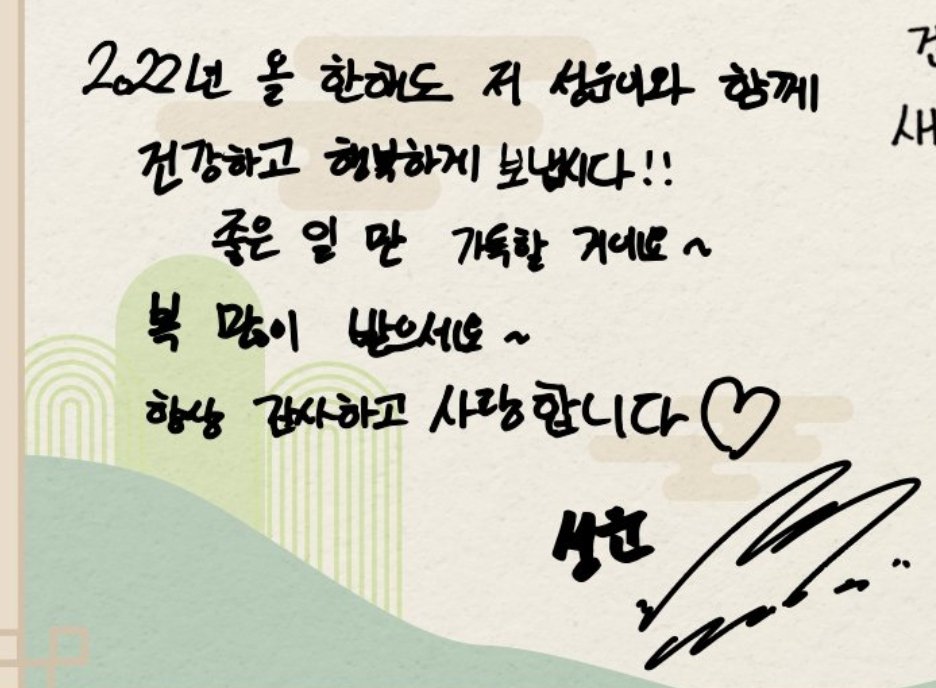 2022년 올 한해도 저 성윤이와 함께
건강하고 행복하게 보냅시다!!
좋은 일 만 가득할 거에요~
복 많이 받으세요~
항상 감사하고 사랑합니다♡
성윤
새